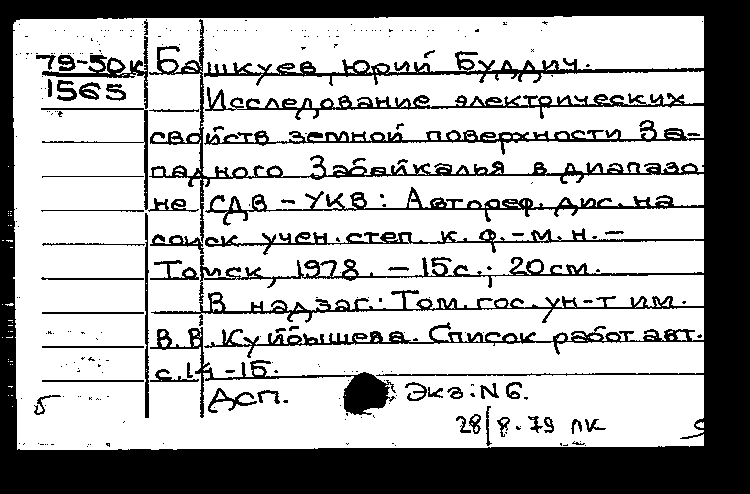 79-50к Башкуев, Юрий Буддич.
1565 Исследование электрических
свойств земной поверхности За-
падного Забайкалья в диапазо-
не СДВ - УКВ: Автореф. дис. на
соиск учен. степ. к. ф.-м. н. -
Томск, 1978. - 15с.; 20см.
В надзаг.: Том. гос. ун-т им.
В.В. Куйбышева. Список работ авт.
с.14-15.
Асп. Экз: N6.
28/8-79 ПК